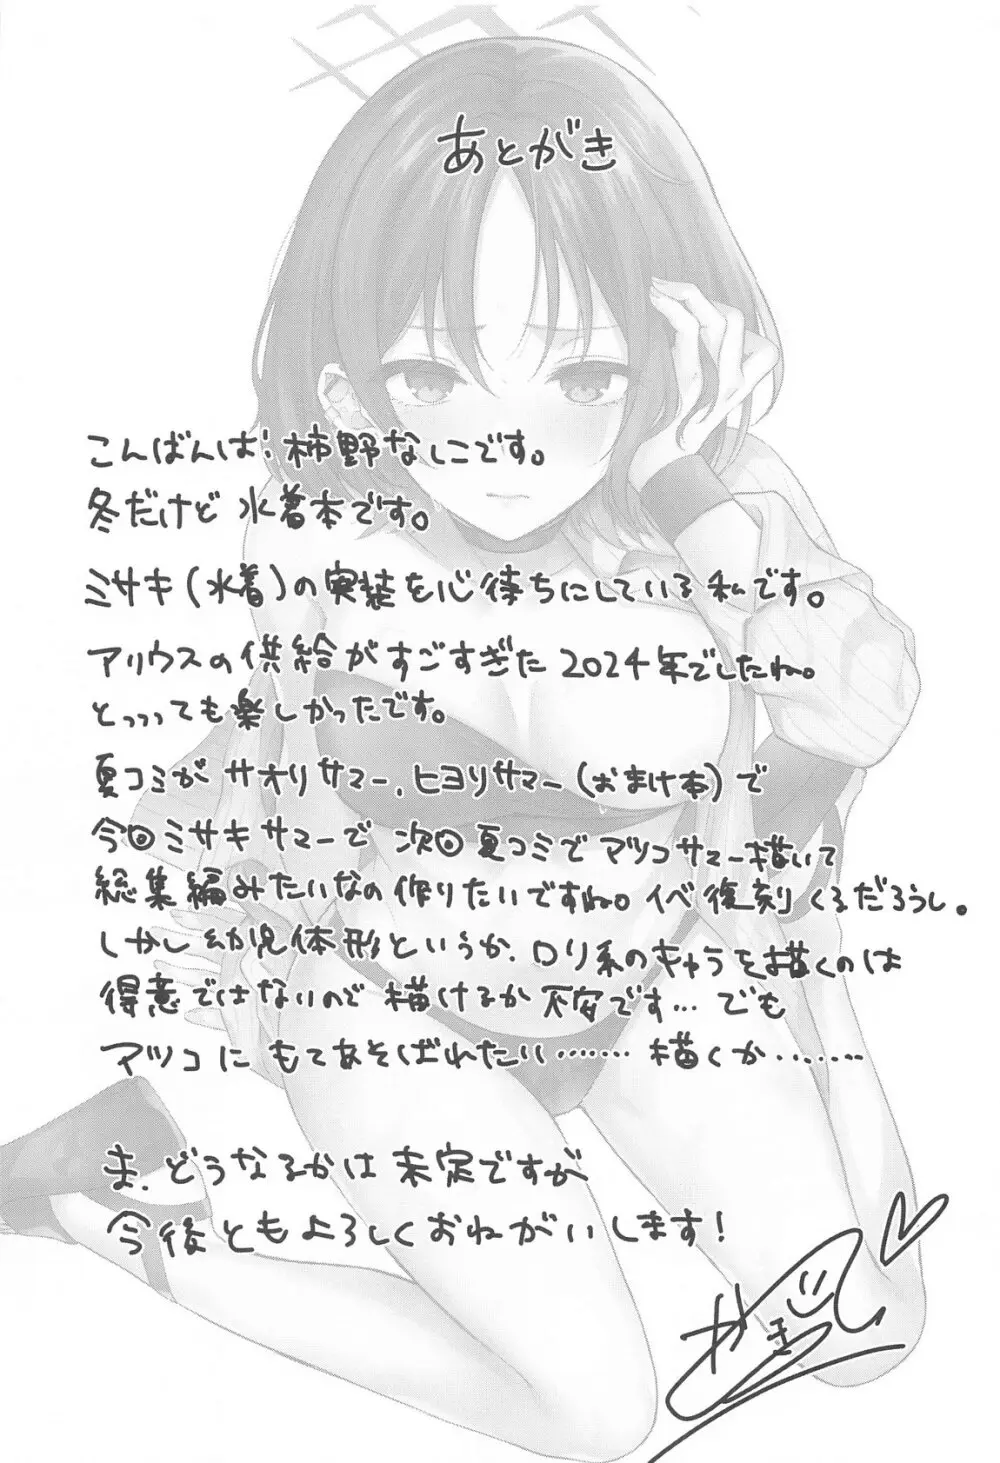 あとがき
こんばんは、柿野なしこです。
冬だけど水着本です。
ミサキ(水着)の実装を心待ちにしている私です。
アリウスの供給がすごすぎた2024年でしたね。
とっっっても楽しかったです。
夏コミがサオリサマー、ヒヨリサマー(おまけ本)で
今回ミサキサマーで次回夏コミでアツコサマー描いて
総集編みたいなの作りたいですね。イベ復刻くるだろうし。
しかし幼児体形というか、ロリ系のキャラを描くのは
得意ではないので描けるか不安です…でも
アツコにもてあそばれたい……描くか……
ま、どうなるかは未定ですが
今後ともよろしくおねがいします!